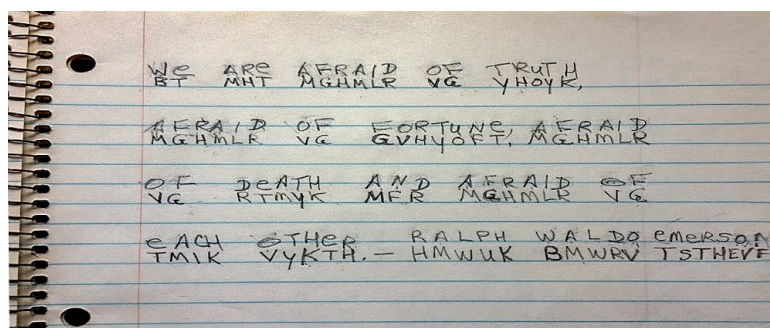 We ARe AFRAID OF TRuTH
BT MHT MGHMLR VG YHOYK,
AFRAID OF FORTUNe, AFRAID
MGHMLR VG GVHYOFT, MGHMLR
OF DeATH AND AFRAID OF
VG RTMYK MFR MGHMLR VG
eACH OTHER RALPH WALDO emERSON
TMIK VYKTH. — HMWUK BMWRV TSTHEVF